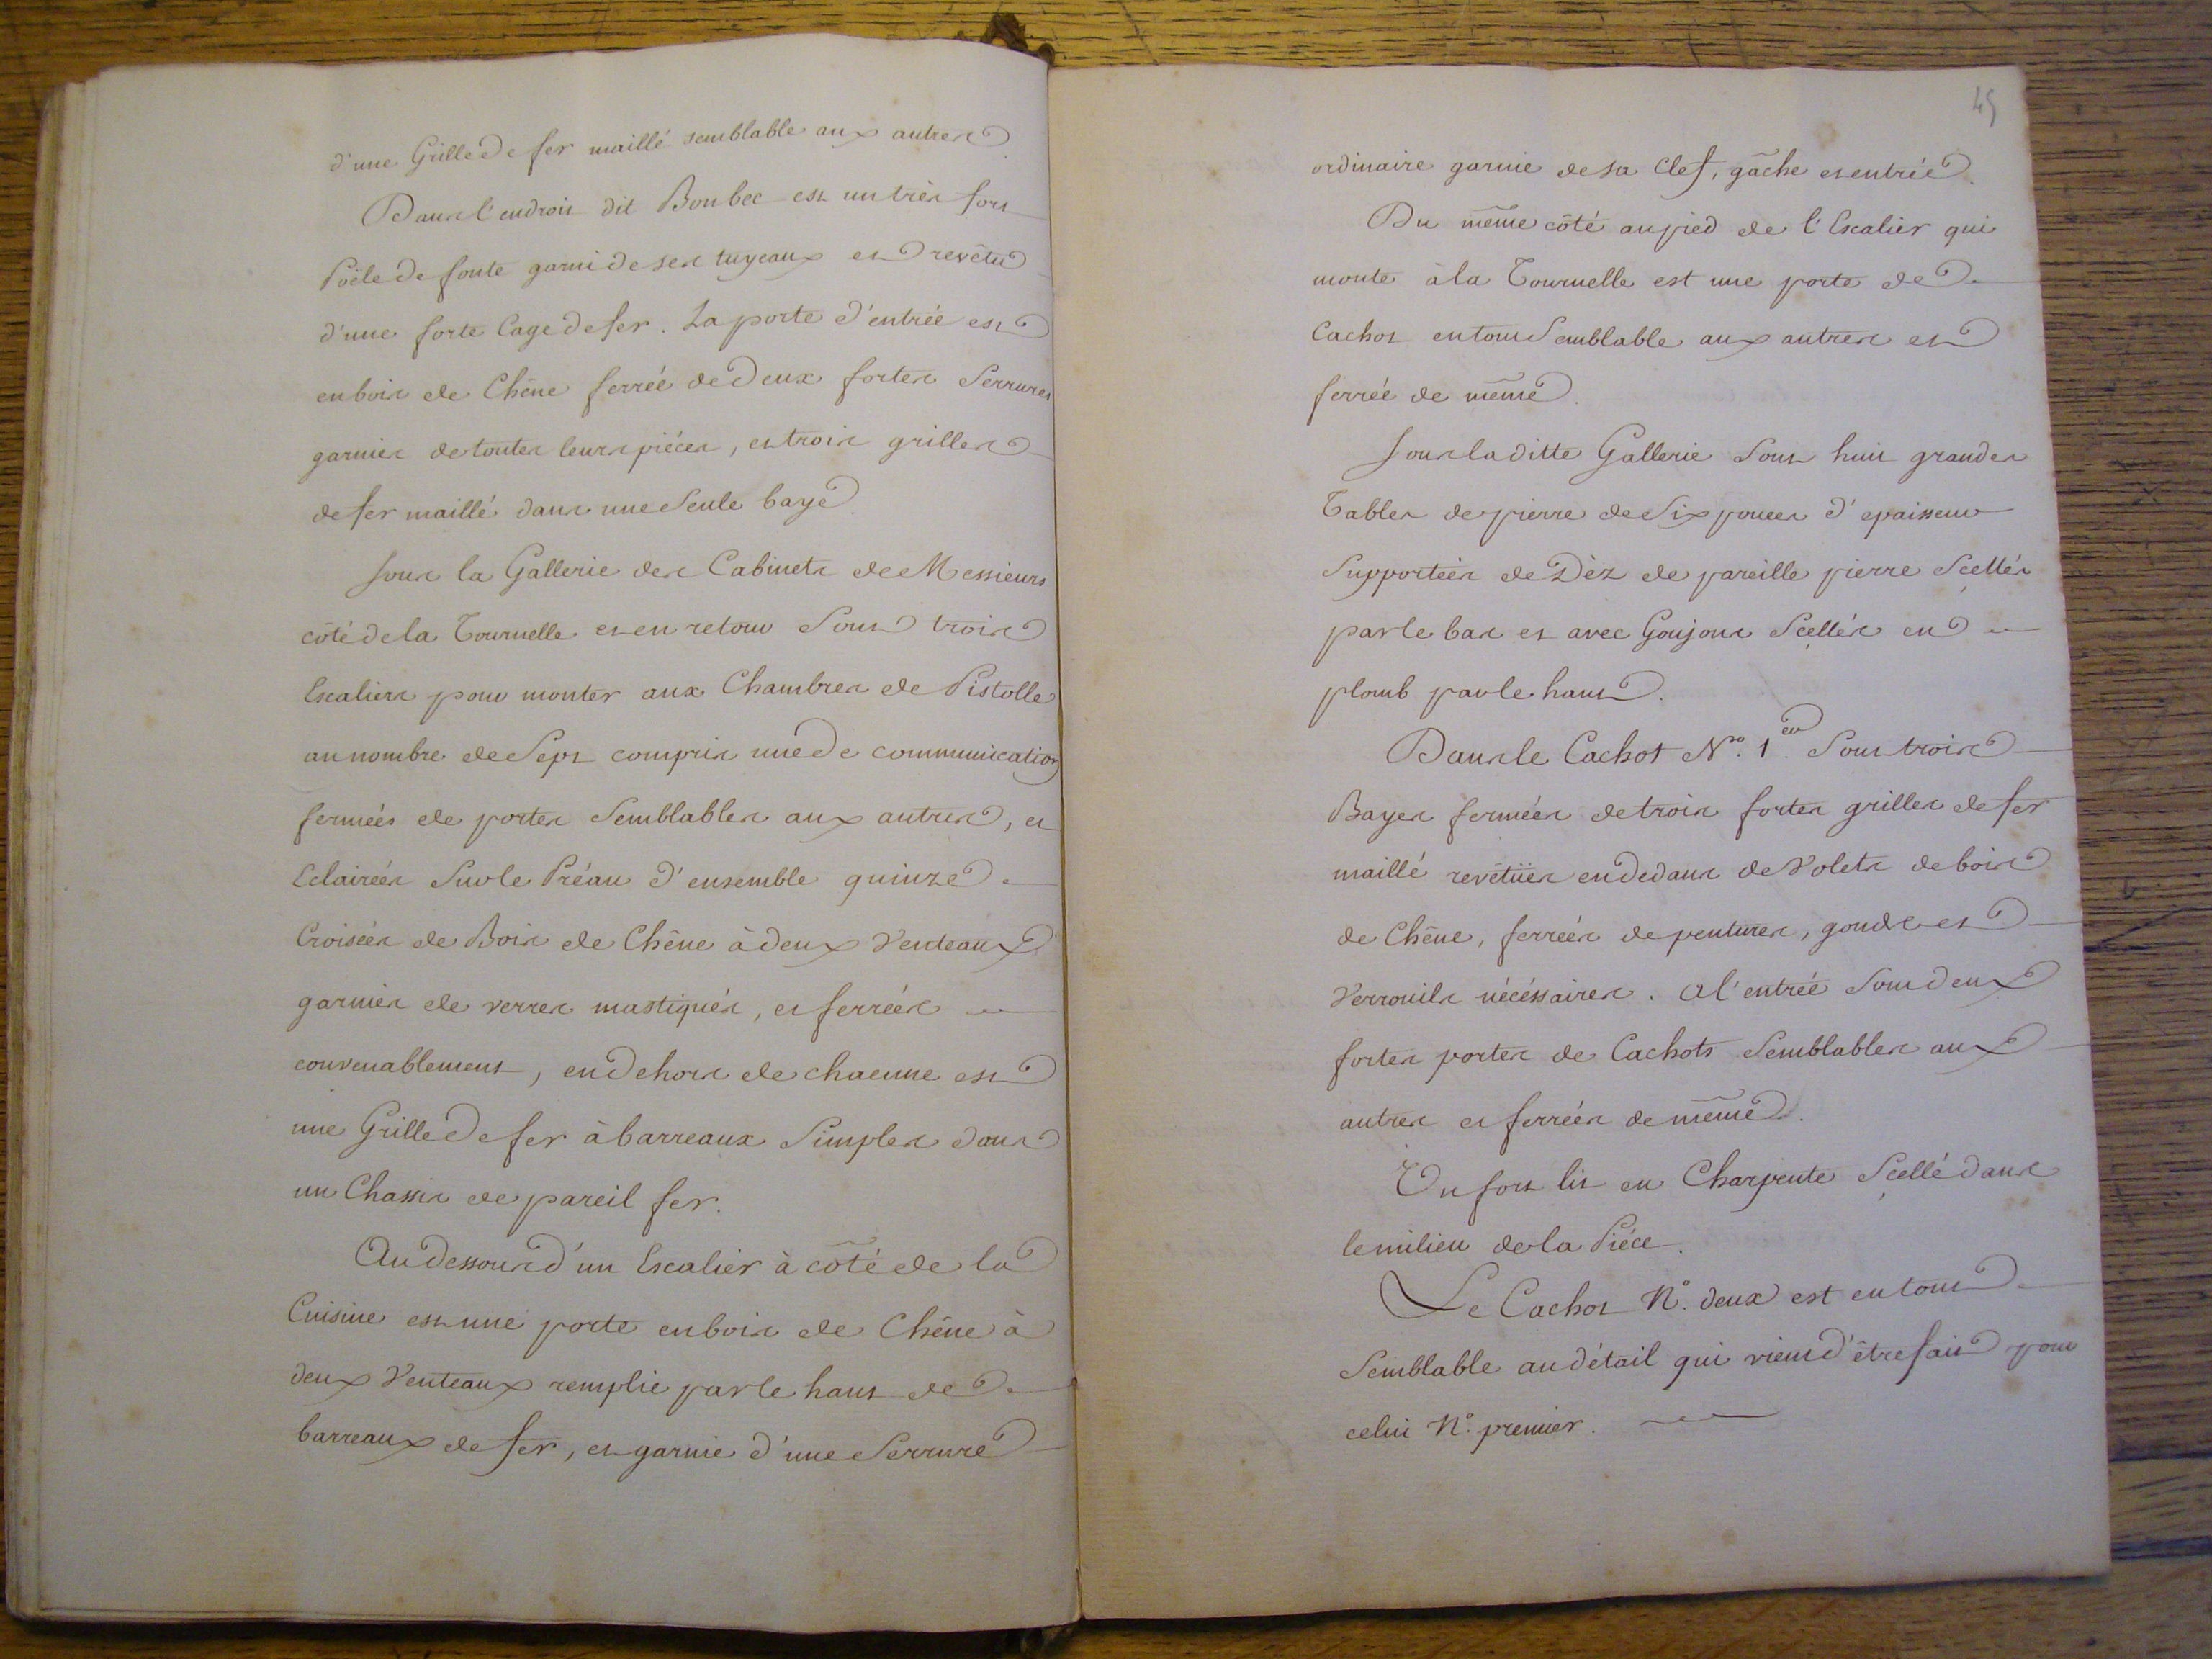 d'une Grille de fer maillé semblable aux autres.
Dans l'endroit dit Bonbec est un très fort
Poële de fonte garni de ses tuyeaux et revêtu
d'une forte Cage de fer. La porte d'entrée est
en bois de Chêne ferrée de deux fortes Serrures
garnies de toutes leurs pièces, et trois grilles
de fer maillé dans une Seule baye.
Sous la Gallerie des Cabinets de Messieurs
côté de la Tournelle et en retour Sont trois
Escaliers pour monter aux Chambres de Pistolle
au nombre de Sept compris une de communication
fermées de portes Semblables aux autres, et
Eclairées Sur le Préau d'ensemble quinze
Croisées de Bois de Chêne à deux Venteaux
garnies de verres mastiqués, et ferrées
convenablement, en dehors de chacune est
une Grille de fer à barreaux Simples dans
un Chassis de pareil fer.
Au dessous d'un Escalier à côté de la
Cuisine est une porte en bois de Chêne à
deux Venteaux remplie par le haut de
barreaux de fer, et garnie d'une Serrure
45
ordinaire garnie de sa Clef, gâche et entrée.
Du même côté au pied de l'Escalier qui
monte à la Tournelle est une porte de
Cachot en tout Semblable aux autres et
ferrée de même.
Sous la ditte Gallerie Sont huit grandes
Tables de pierre de Six pouces d'epaisseur
Supportées de Dèz de pareille pierre Scellés
par le bas et avec Goujons Scellés en
plomb par le haut.
Dans le Cachot N.º 1.er Sont trois
Bayes fermées de trois fortes grilles de fer
maillé revêtües en dedans de Volets de bois
de Chêne, ferrées de pentures, gonds et
Verrouils nécéssaires. A l'entrée Sont deux
fortes portes de Cachots Semblables aux
autres et ferrées de même.
Un fort lit en Charpente Scellé dans
le milieu de la Piéce.
Le Cachot N.º deux est en tout
Semblable au détail qui vient d'être fait pour
celui N.º premier.